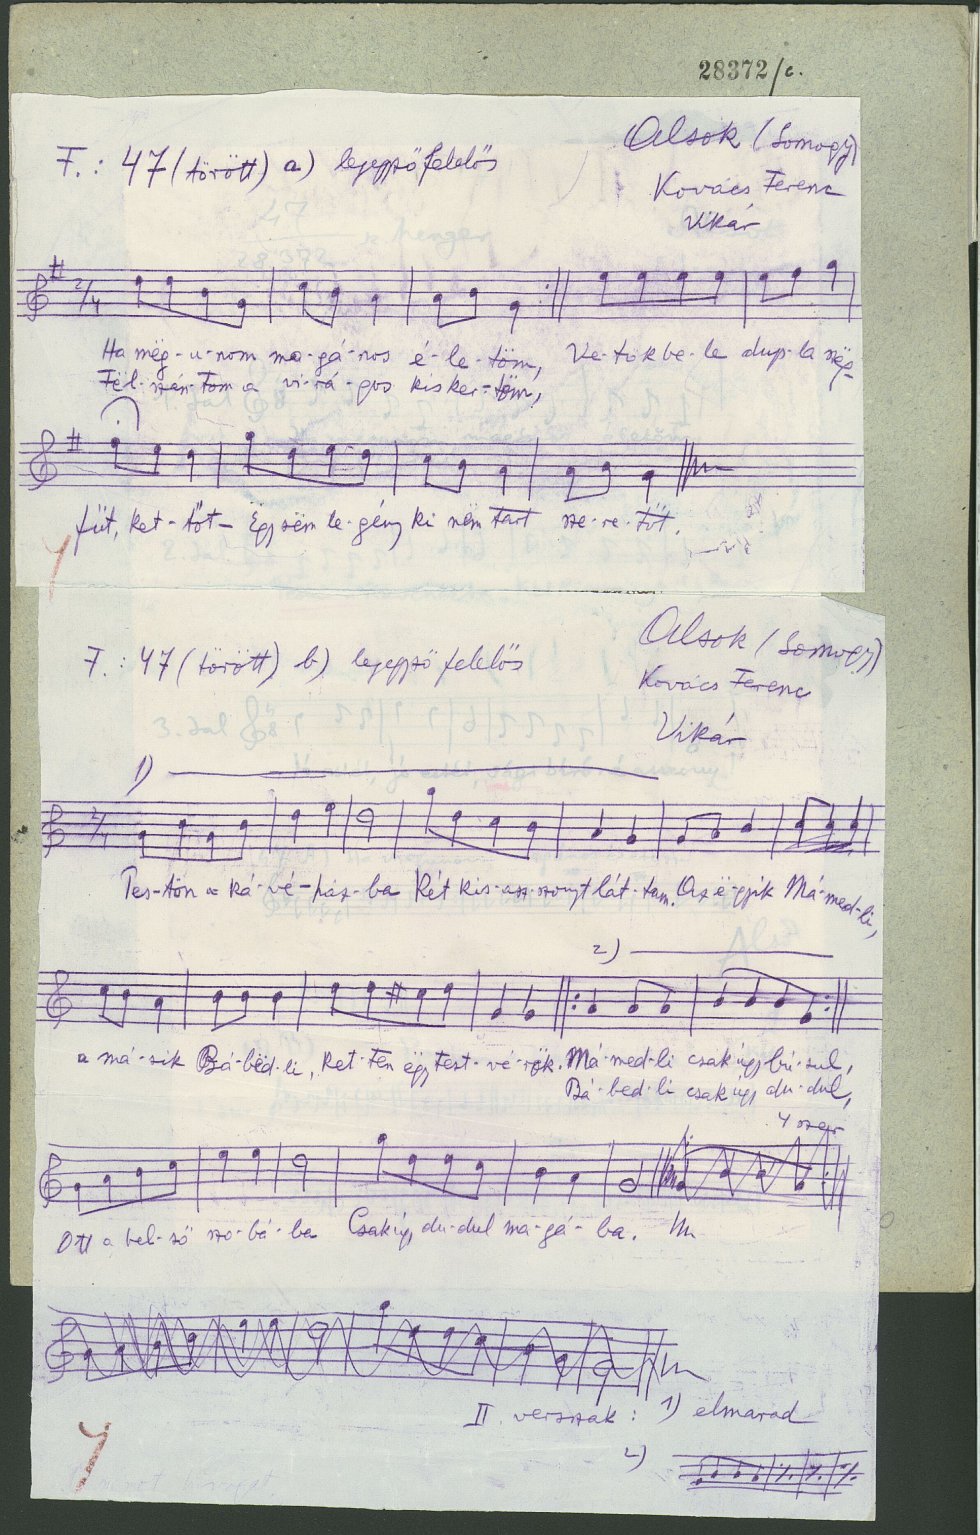 28372/c.
Alsok (Somogy)
F.: 47 (törött) a) legeppsőfelelős
Kovács Ferenc
Vikár
2/4
Ha mëg-u-nom ma-gá-nos é-le-töm, Ve-tök be-le dup-la nëg-
Fël-szán-tom a vi-rá-gos kis ker-töm,
füt, ket-töt- Ëgy sëm le-gény ki nëm tart sze-re-töt.
Alsok (Somogy)
F.: 47 (törött) b) legeppső felelős
Kovács Ferenc
Vikár
1)
2/4
Pes-tön a ká-vé-ház-ba Két kis-asz-szonyt lát-tam. Az ë-gyik Má-med-li,
2)
a má-sik Bá-bëd-li, ket-ten ëgy test-vé-rök. Má-med-li csak úgy bú-sul,
Bá-bed-li csak úgy du-dul,
4 szer
Ott a bel-ső szo-bá-ba Csak úgy du-dul ma-gá-ba.
II. versszak: 1) elmarad
2)